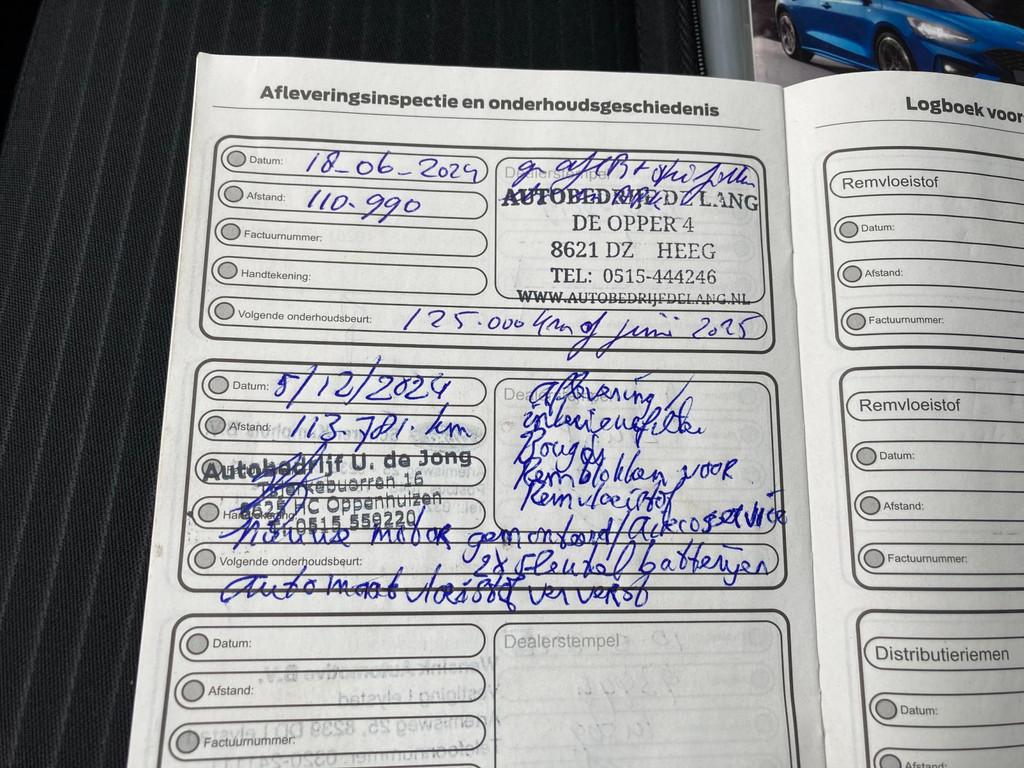 Afleveringsinspectie en onderhoudsgeschiedenis
Datum: 18-06-2024
Afstand: 110.990
Factuurnummer:
Handtekening:
Volgende onderhoudsbeurt: 125.000 km of juni 2025
Dealerstempel
AUTOBEDRIJF DE LANG
DE OPPER 4
8621 DZ HEEG
TEL: 0515-444246
WWW.AUTOBEDRIJFDELANG.NL
Datum: 5/12/2024
Afstand: 113.781. km
Autobedrijf U. de Jong
16
8625 HC Oppenhuizen
T: 0515 559220
Volgende onderhoudsbeurt:
Aflevering/
interieurfilter
Bougis
Remblokken voor
Remvloeistof
nieuwe motor gemonteerd/Aircoservice
2x Sleutel batterijen
Automaat vloeistof ververst
Datum:
Afstand:
Factuurnummer:
Dealerstempel
Logboek voor
Remvloeistof
Datum:
Afstand:
Factuurnummer:
Remvloeistof
Datum:
Afstand:
Factuurnummer:
Distributieriemen
Datum:
Afstand: